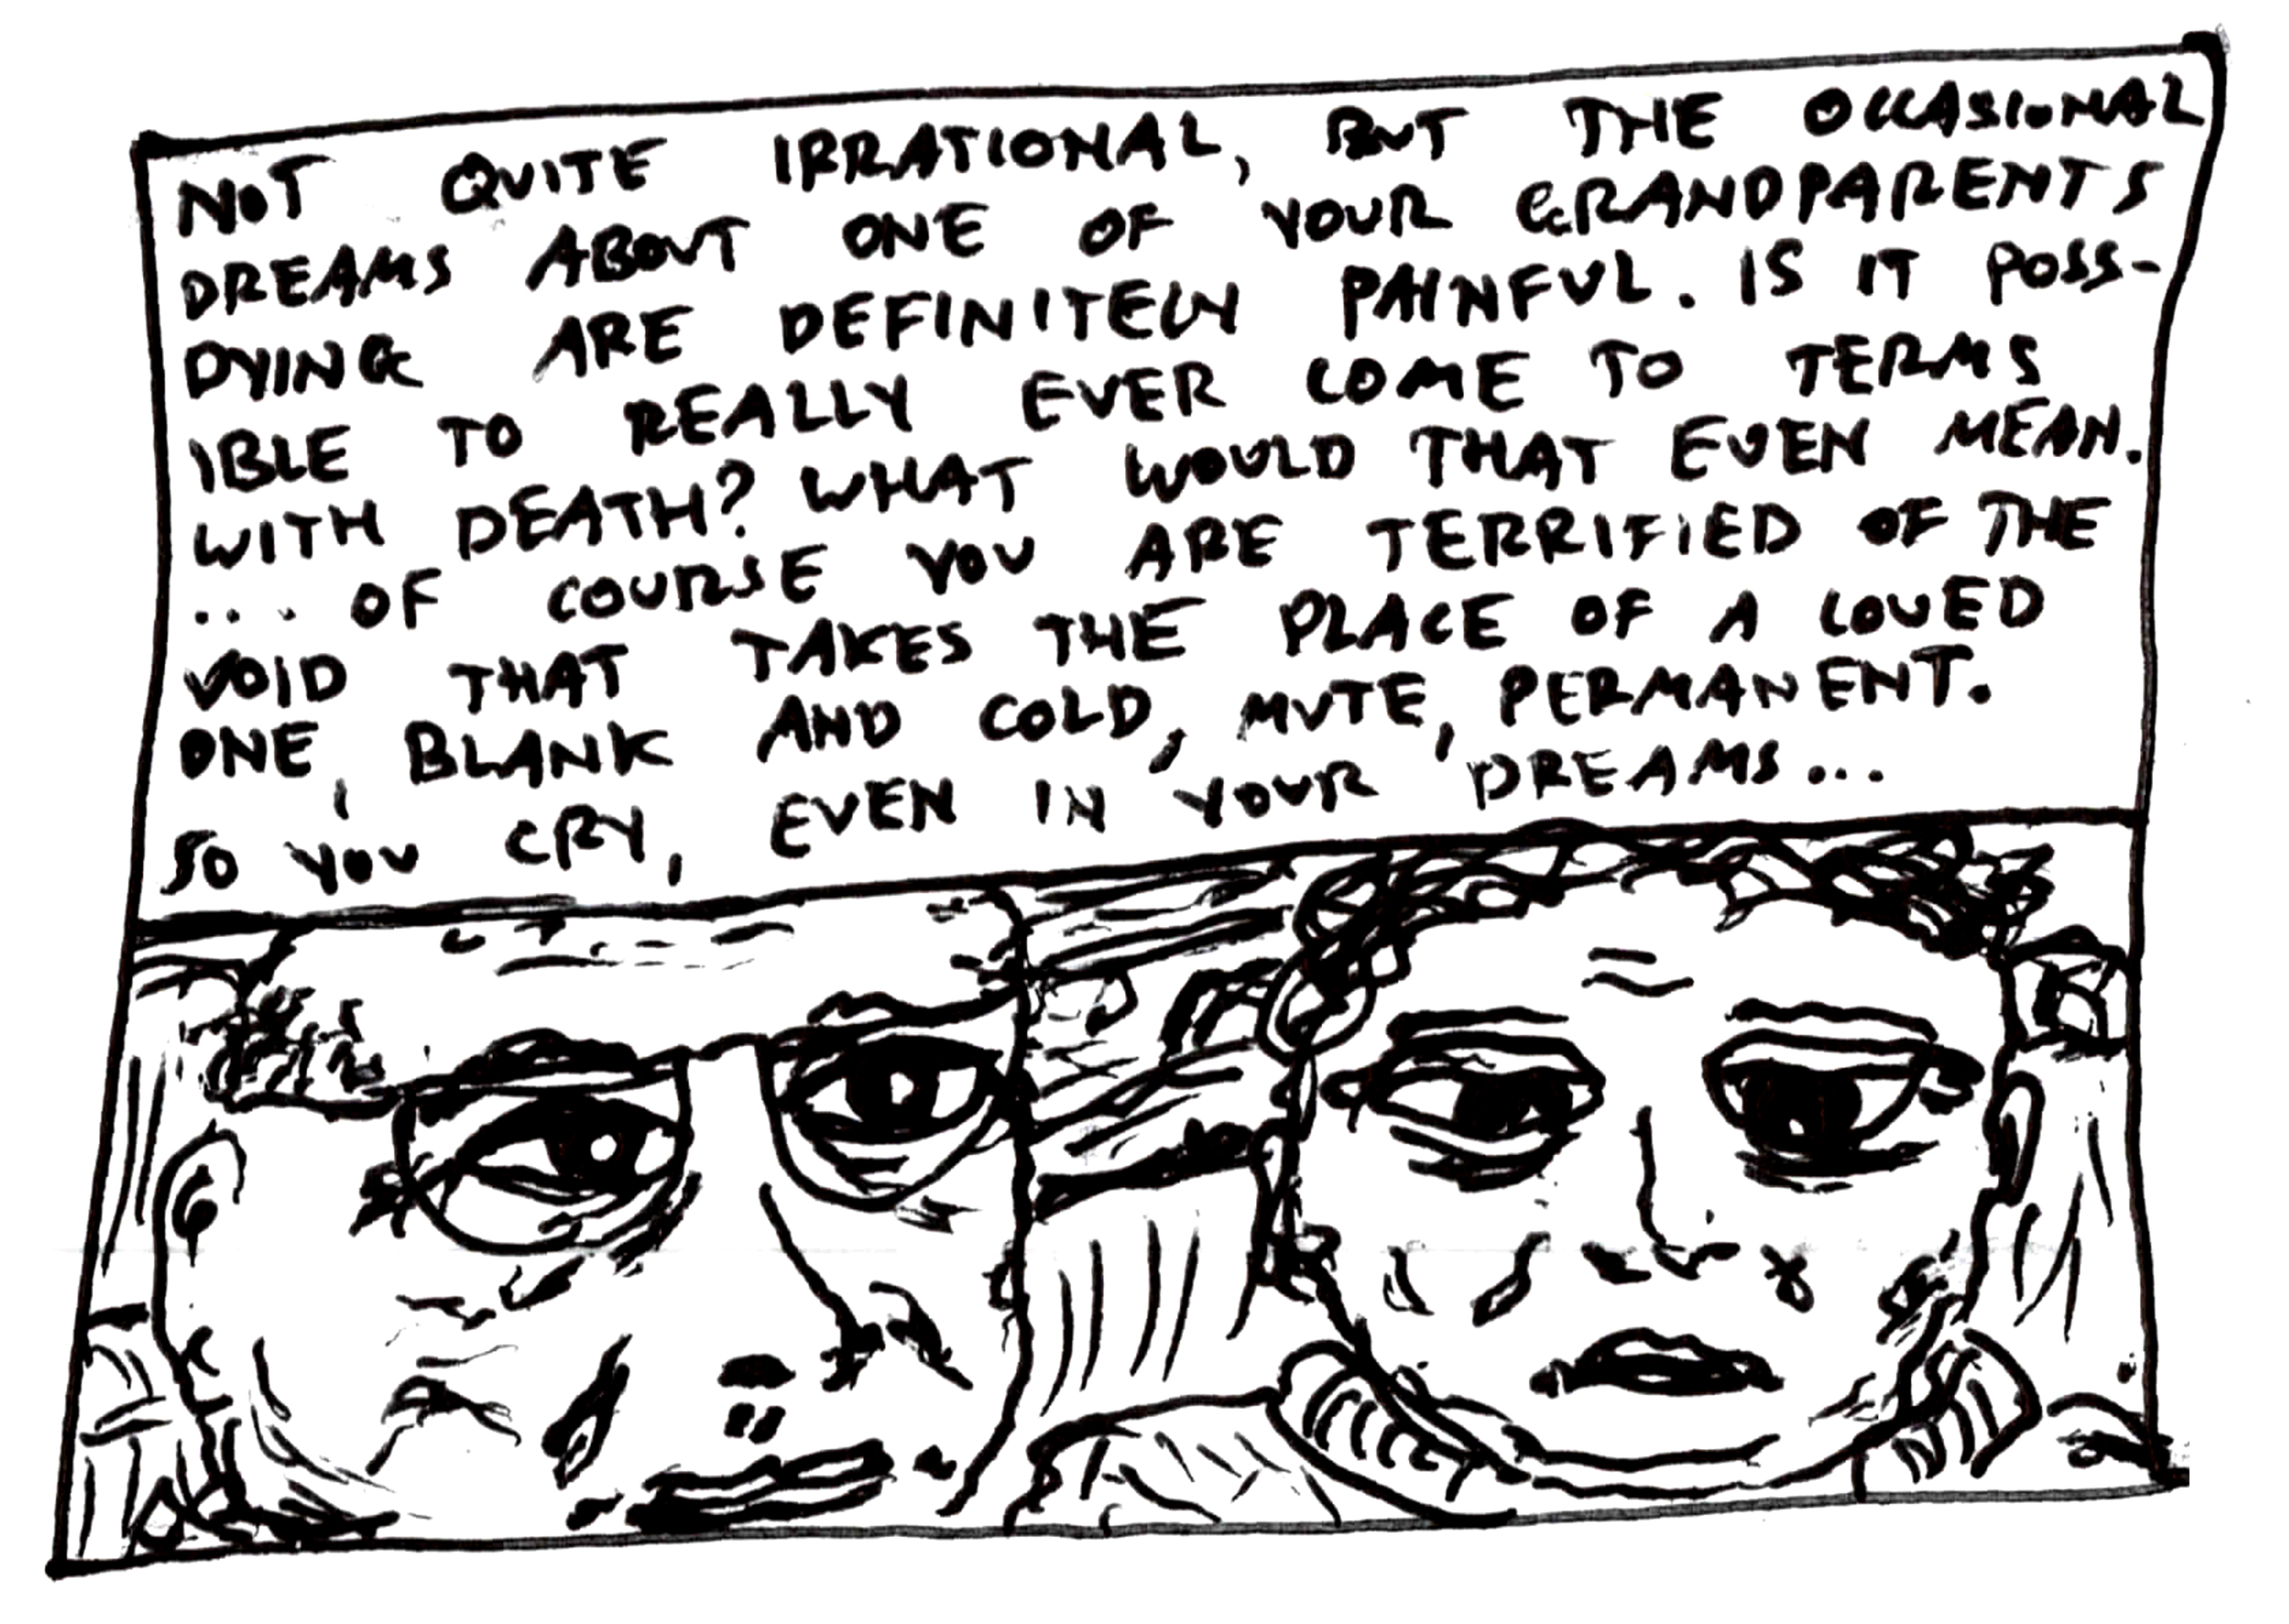 NOT QUITE IRRATIONAL, BUT THE OCCASIONAL
DREAMS ABOUT ONE OF YOUR GRANDPARENTS
DYING ARE DEFINITELY PAINFUL. IS IT POSS-
IBLE TO REALLY EVER COME TO TERMS
WITH DEATH? WHAT WOULD THAT EVEN MEAN.
... OF COURSE YOU ARE TERRIFIED OF THE
VOID THAT TAKES THE PLACE OF A LOVED
ONE, BLANK AND COLD, MUTE, PERMANENT.
SO YOU CRY, EVEN IN YOUR DREAMS...